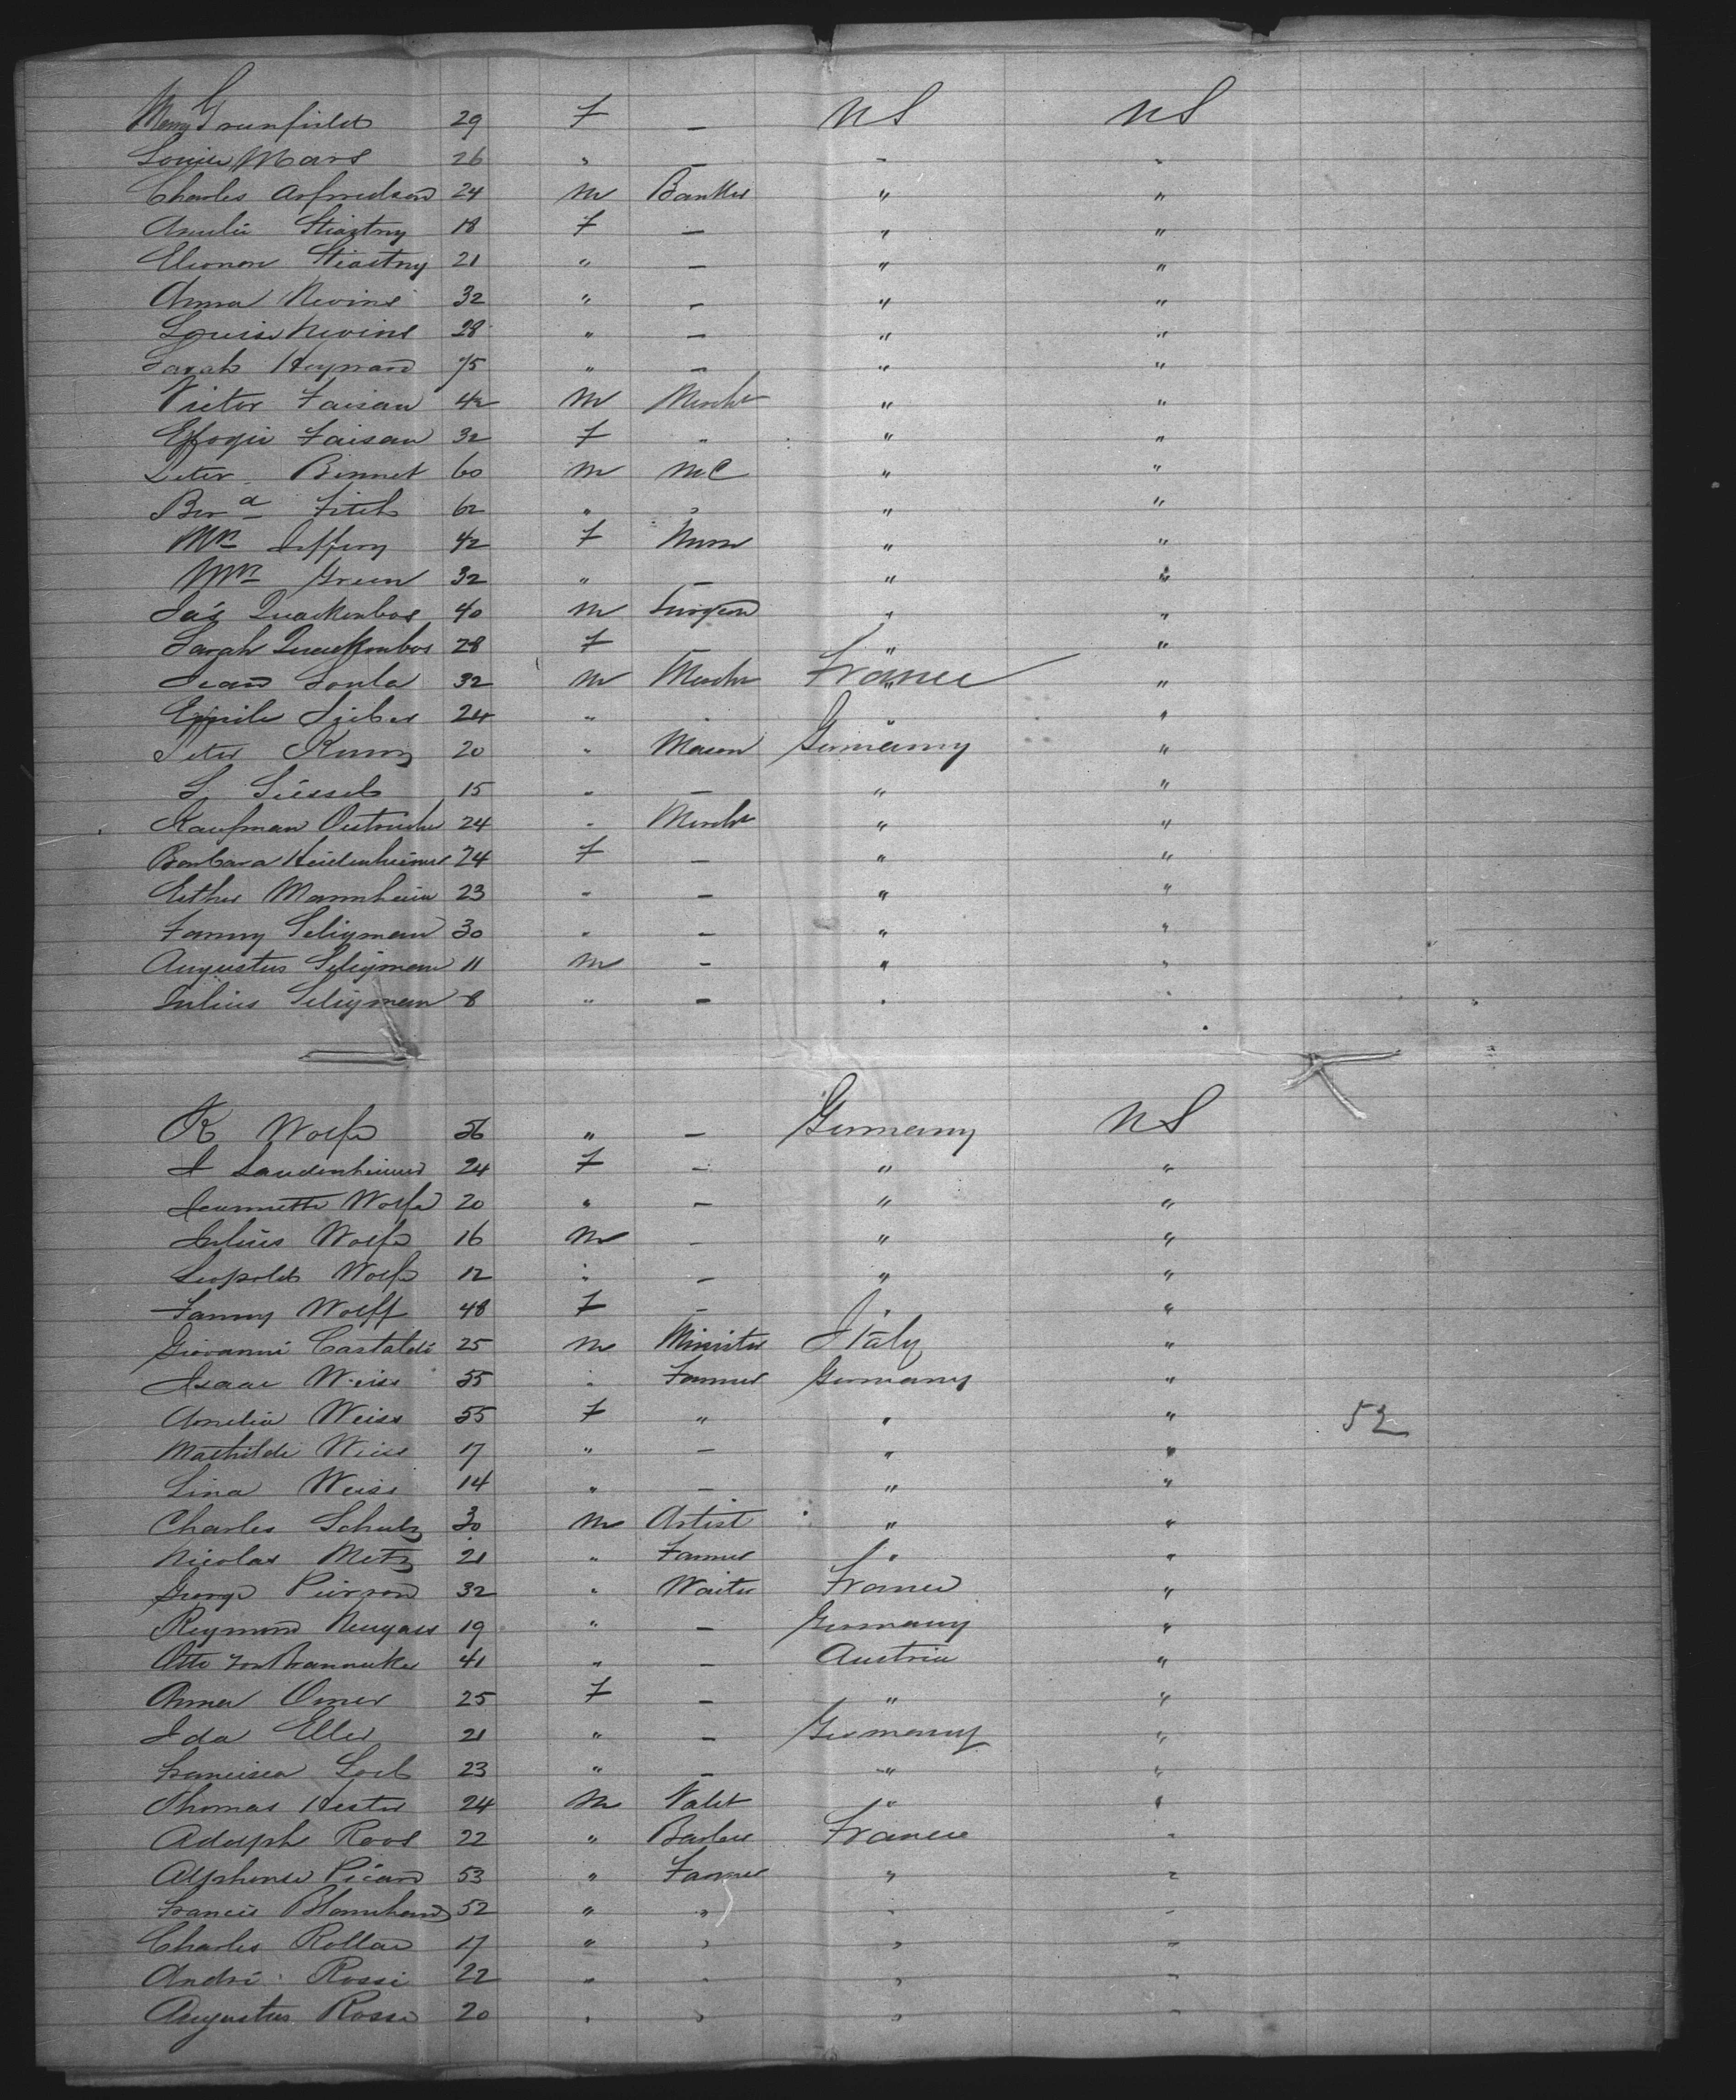 Mary Grunfield 29 F — US US
Louise Mars 26 " — " "
Charles 24 M Banker " "
Amelie Stiastny 18 F — " "
Eleonor Stiastny 21 " — " "
Anna Nevins 32 " — " "
Louise Nevins 28 " — " "
Sarah Heyman 75 " — " "
Victor Faisan 42 M Mercht " "
Faisan 32 F " " "
Peter Bennet 60 M MC " "
Fitch 62 " " " "
Mrs Jeffery 42 F Nurse " "
Mrs Green 32 " — " "
Jas Quackenbos 40 M Surgeon " "
Sarah Quackenbos 28 F — " "
Jean Soula 32 M Mercht France "
Emile 24 " " " "
Peter Kunz 20 " Mason Germany "
S 15 " — " "
Kaufman 24 " Mercht " "
Barbara Heidenheimer 24 F — " "
Esther Mannheim 23 " — " "
Fanny Seligman 30 " — " "
Augustus Seligman 11 M — " "
Julius Seligman 8 " — " "
K Wolff 56 " — Germany US
J Laudenheimer 24 F — " "
Jeannette Wolff 20 " — " "
Julius Wolff 16 M — " "
Leopold Wolff 12 " — " "
Fanny Wolff 48 F — " "
Giovanni Castaldi 25 M Minister Italy "
Isaac Weiss 55 " Farmer Germany "
Amelia Weiss 55 F " " " 52
Mathilde Weiss 17 " — " "
Lina Weiss 14 " — " "
Charles Schulz 30 M Artist " "
Nicolas Metz 21 " Farmer " "
George Pierson 32 " Waiter France "
Reymond Neugass 19 " — Germany "
Otto von 41 " — Austria "
Anna Omer 25 F — " "
Ida Eller 21 " — Germany "
Francisca Loeb 23 " — " "
Thomas Hester 24 M Valet " "
Adolph Roos 22 " Barber France "
Alphonse Picard 53 " Farmer " "
Francis Blanchard 52 " " " "
Charles Rollan 17 " " " "
André Rossi 22 " " " "
Augustus Rossi 20 " " " "